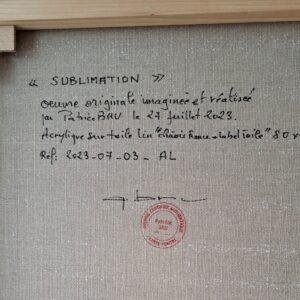 « SUBLIMATION »
oeuvre originale imaginée et réalisée
par Patrice BRU le 27 juillet 2023.
Acrylique sur toile lin "
Réf: 2023-07-03_AL